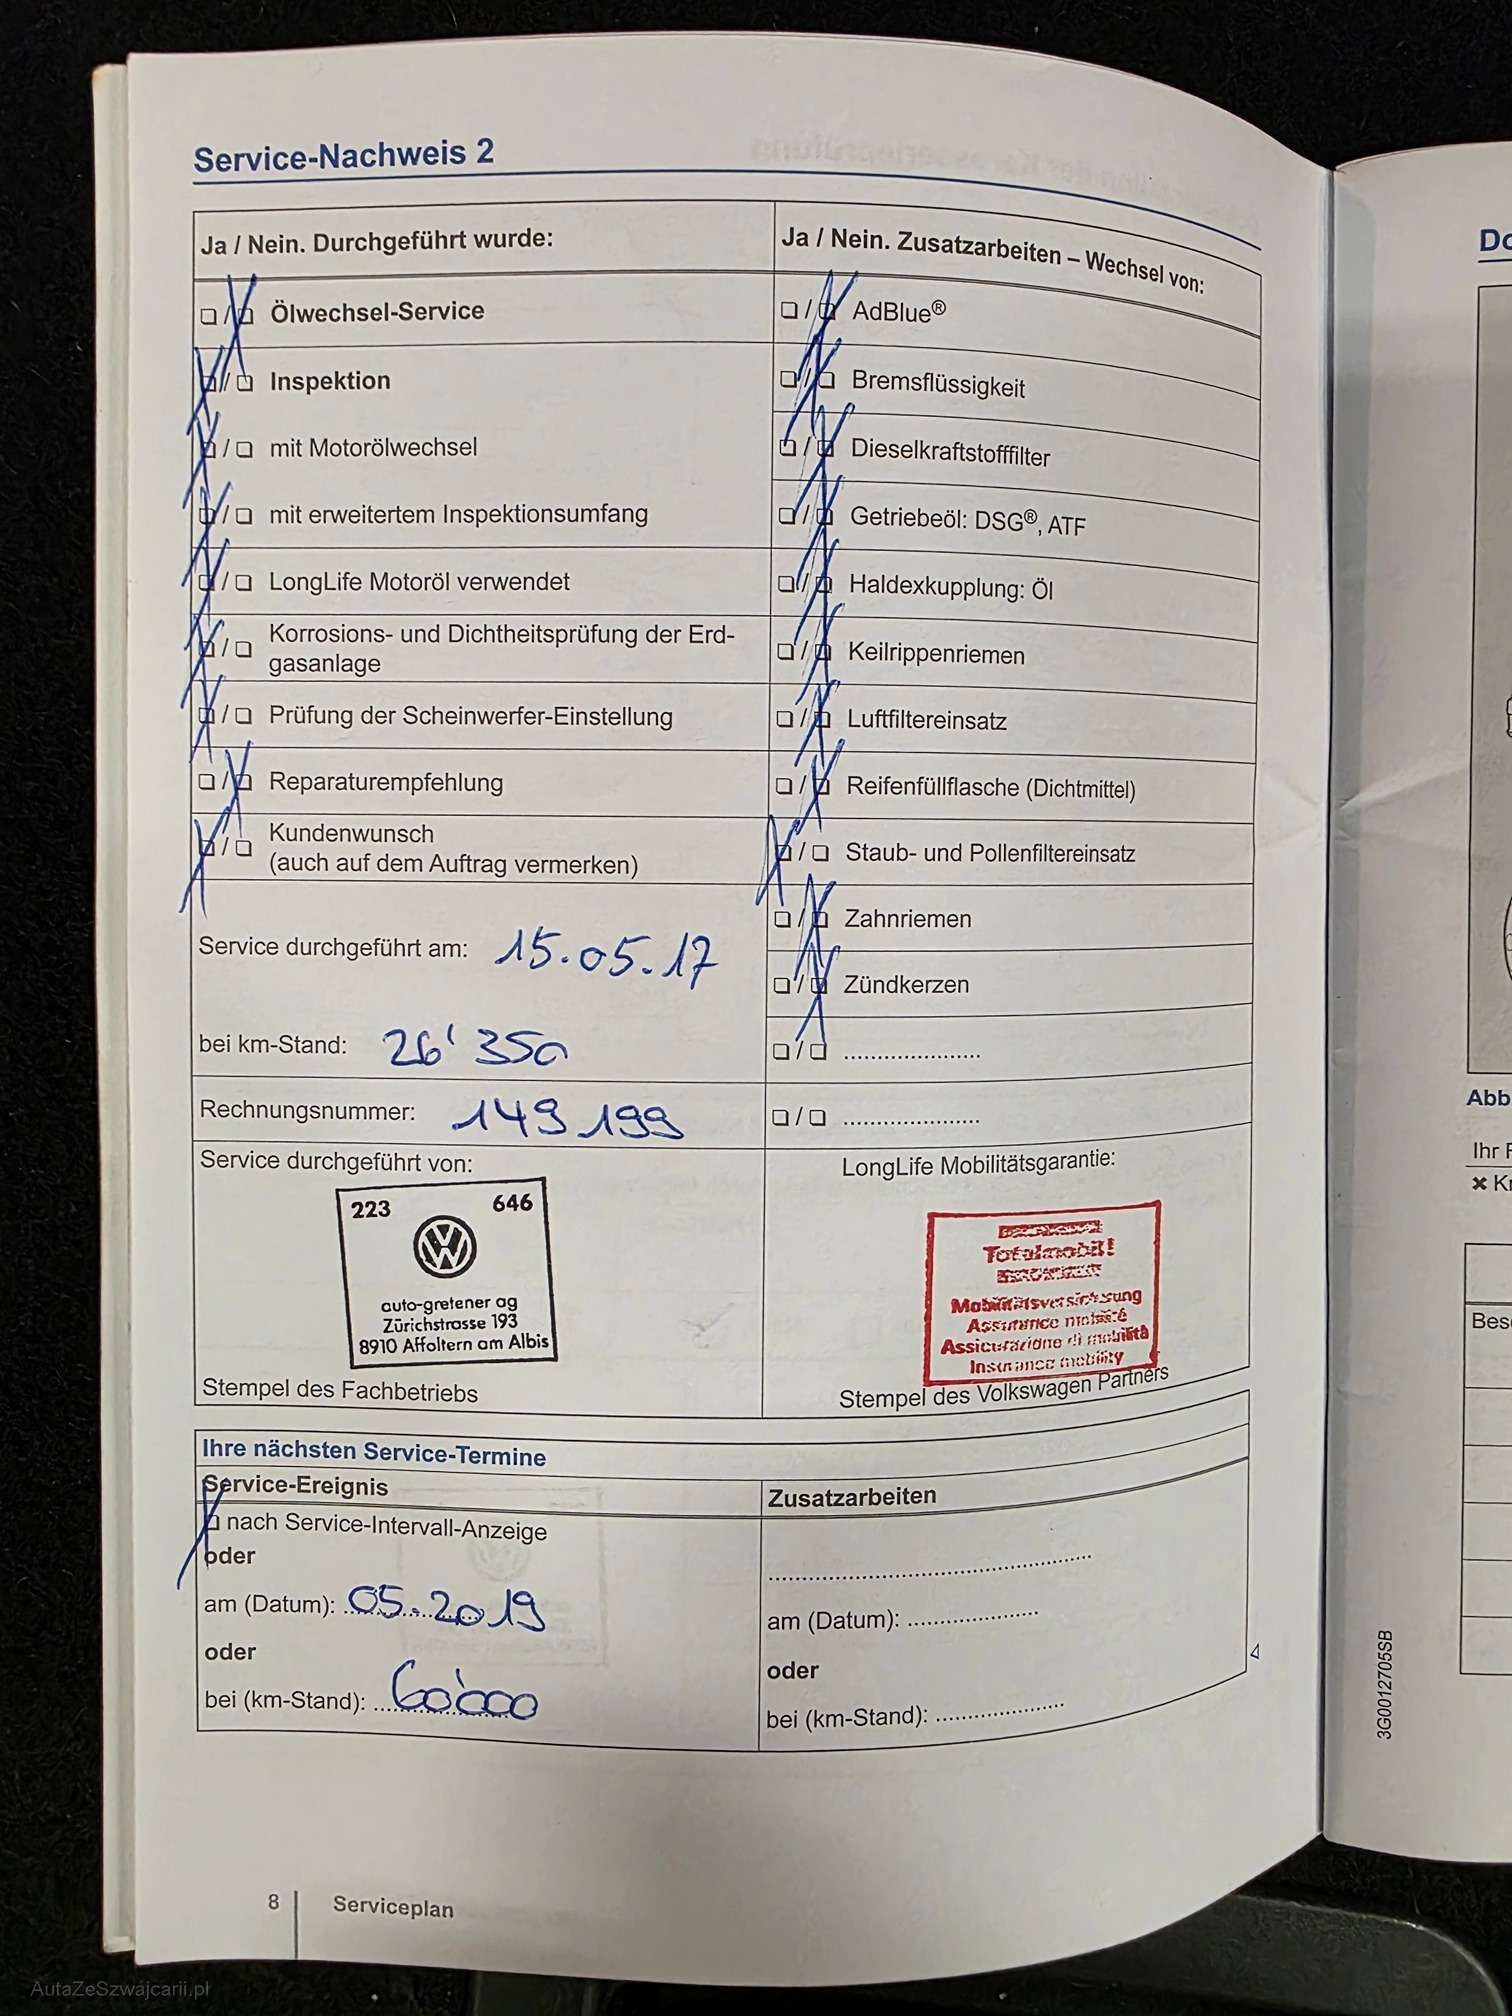 Service-Nachweis 2
Ja / Nein. Durchgeführt wurde:
Ölwechsel-Service
Inspektion
mit Motorölwechsel
mit erweitertem Inspektionsumfang
LongLife Motoröl verwendet
Korrosions- und Dichtheitsprüfung der Erd-
gasanlage
Prüfung der Scheinwerfer-Einstellung
Reparaturempfehlung
Kundenwunsch
(auch auf dem Auftrag vermerken)
Service durchgeführt am: 15.05.17
bei km-Stand: 26'350
Rechnungsnummer: 149199
Service durchgeführt von:
223 646
auto-gretener ag
Zürichstrasse 193
8910 Affoltern am Albis
Stempel des Fachbetriebs
Ja / Nein. Zusatzarbeiten – Wechsel von:
AdBlue®
Bremsflüssigkeit
Dieselkraftstofffilter
Getriebeöl: DSG®, ATF
Haldexkupplung: Öl
Keilrippenriemen
Luftfiltereinsatz
Reifenfüllflasche (Dichtmittel)
Staub- und Pollenfiltereinsatz
Zahnriemen
Zündkerzen
LongLife Mobilitätsgarantie:
Totalmobil!
Mobilitätsversicherung
Assurance mobilité
Assicurazione di mobilità
Insurance mobility
Stempel des Volkswagen Partners
Ihre nächsten Service-Termine
Service-Ereignis
nach Service-Intervall-Anzeige
oder
am (Datum): 05.2019
oder
bei (km-Stand): 60'000
Zusatzarbeiten
am (Datum):
oder
bei (km-Stand):
8 Serviceplan
Do
Abb
Ihr F
Kr
Bes
3G0012705SB
AutaZeSzwajcarii.pl